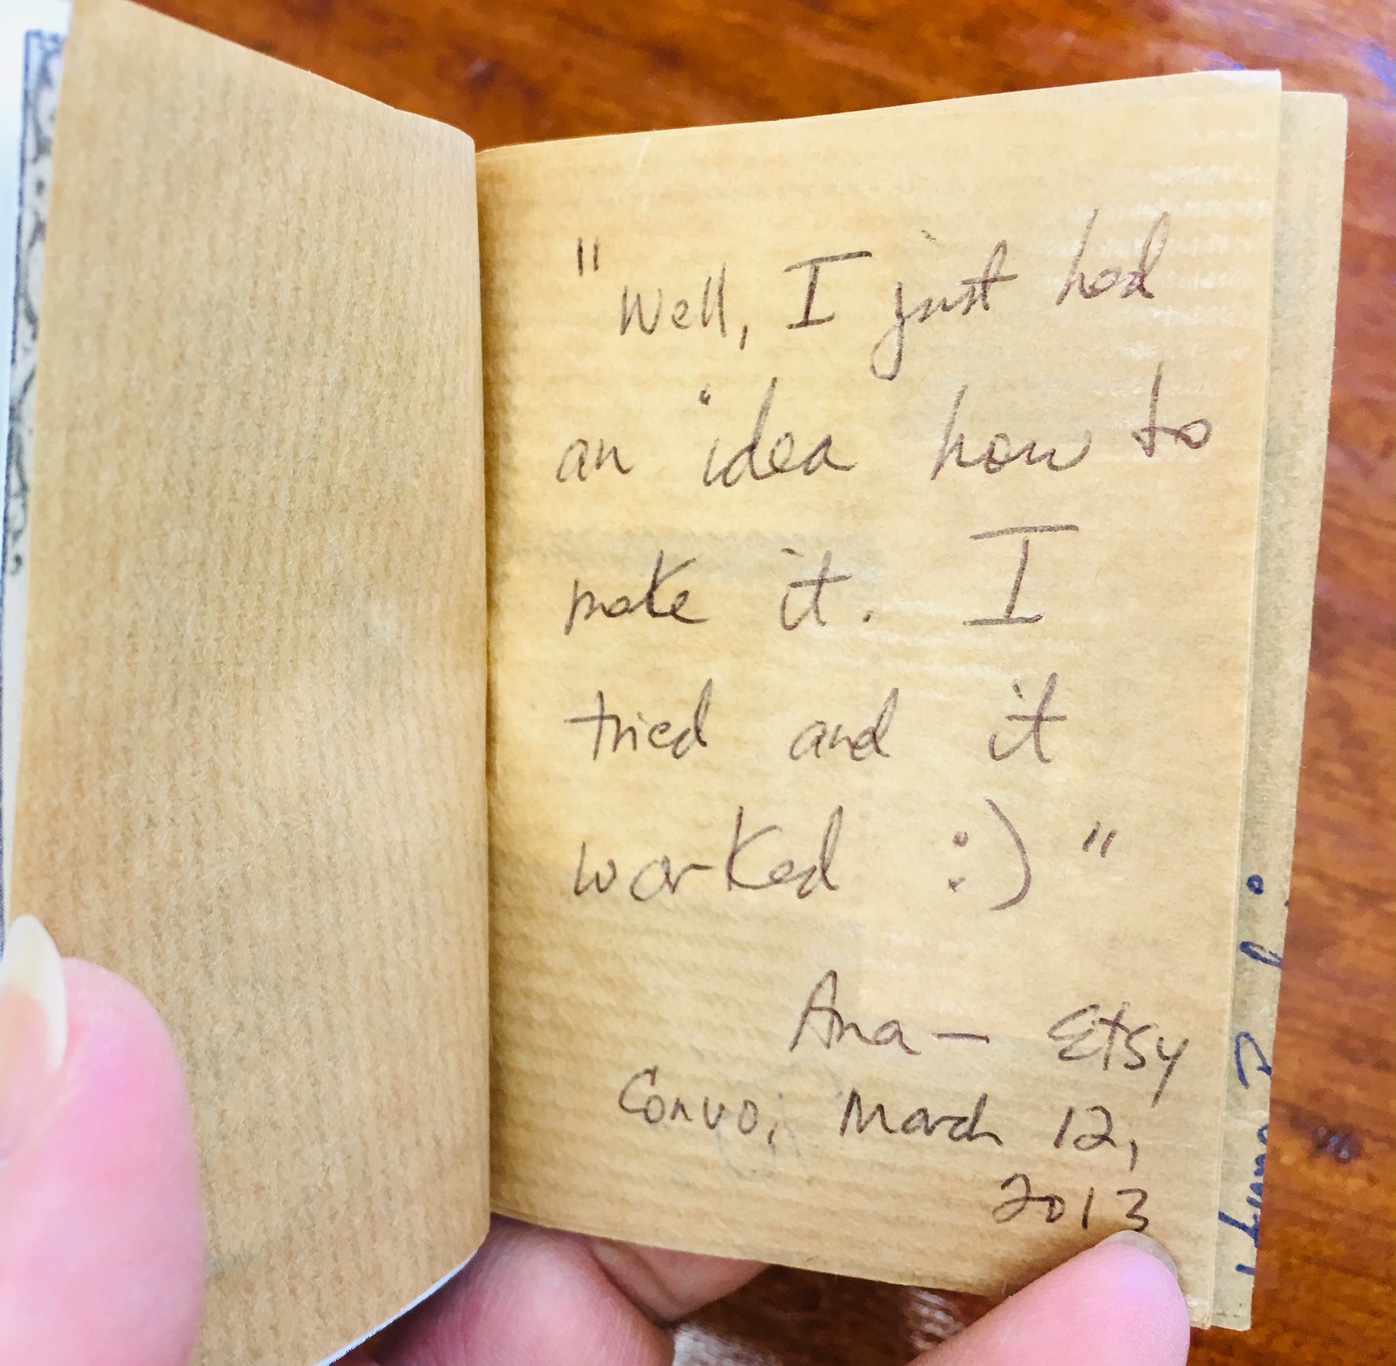 "Well, I just had
an idea how to
make it. I
tried and it
worked :)"
Ana — Etsy
Convo, March 12,
2013